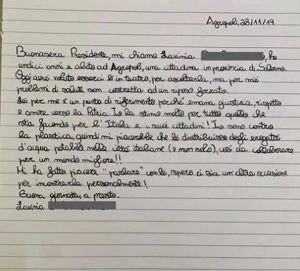 Agropoli, 28/11/19
Buonasera Presidente, mi chiamo Lavinia ho
undici anni e abito ad Agropoli, una cittadina in provincia di Salerno.
Oggi avrei voluto esserci lì in teatro, per ascoltarla, ma per miei
problemi di salute non costretta ad un riposo forzato.
Lei per me è un punto di riferimento perché emana, giustizia, rispetto
e amore verso la Patria. Io la stimo molto per tutto quello che
sta facendo per l'Italia e i suoi cittadini! Io sono contro
la plastica, quindi mi piacerebbe che la distribuzione degli erogatori
d'acqua potabile nelle città italiane (e non solo), così da collaborare
per un mondo migliore!!
Mi ha fatto piacere "parlare" con lei, spero ci sia un'altra occasione
per incontrarla personalmente!
Buona giornata, a presto.
Lavinia